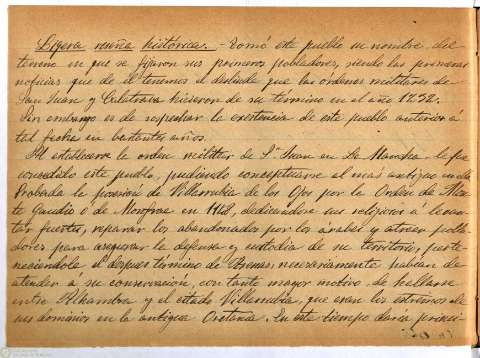 Ligera reseña histórica. - Tomó este pueblo su nombre, del
terreno en que se fijaron sus primeros pobladores, siendo las primeras
noticias que de él tenemos el deslinde que las ordenes militares de
San Juan y Calatrava hicieron de su término en el año 1232.
Sin embargo es de sospechar la existencia de este pueblo anterior á
tal fecha en bastantes años.
Al establecerse la orden militar de Sn Juan en La Mancha, le fué
concedido este pueblo, pudiendo conceptuarse el mas antiguo en ella
Probada la posesión de Villarrubia de los Ojos por la Orden de Mon-
te Gaudio ó de Monfrae en, dedicandose sus religiosos á levan-
tar fuertes, reparar los abandonados por los árabes y atraer pobla-
dores para asegurar la defensa y custodia de su territorio, perte-
neciendole el despues término de Arenas, necesariamente habian de
atender a su conservacion, con tanto mayor motivo de hallarse
entre Alhambra y el estado Villarrubia, que eran los estremos de
sus dominios en la antigua Oretania. En este tiempo daria princi-